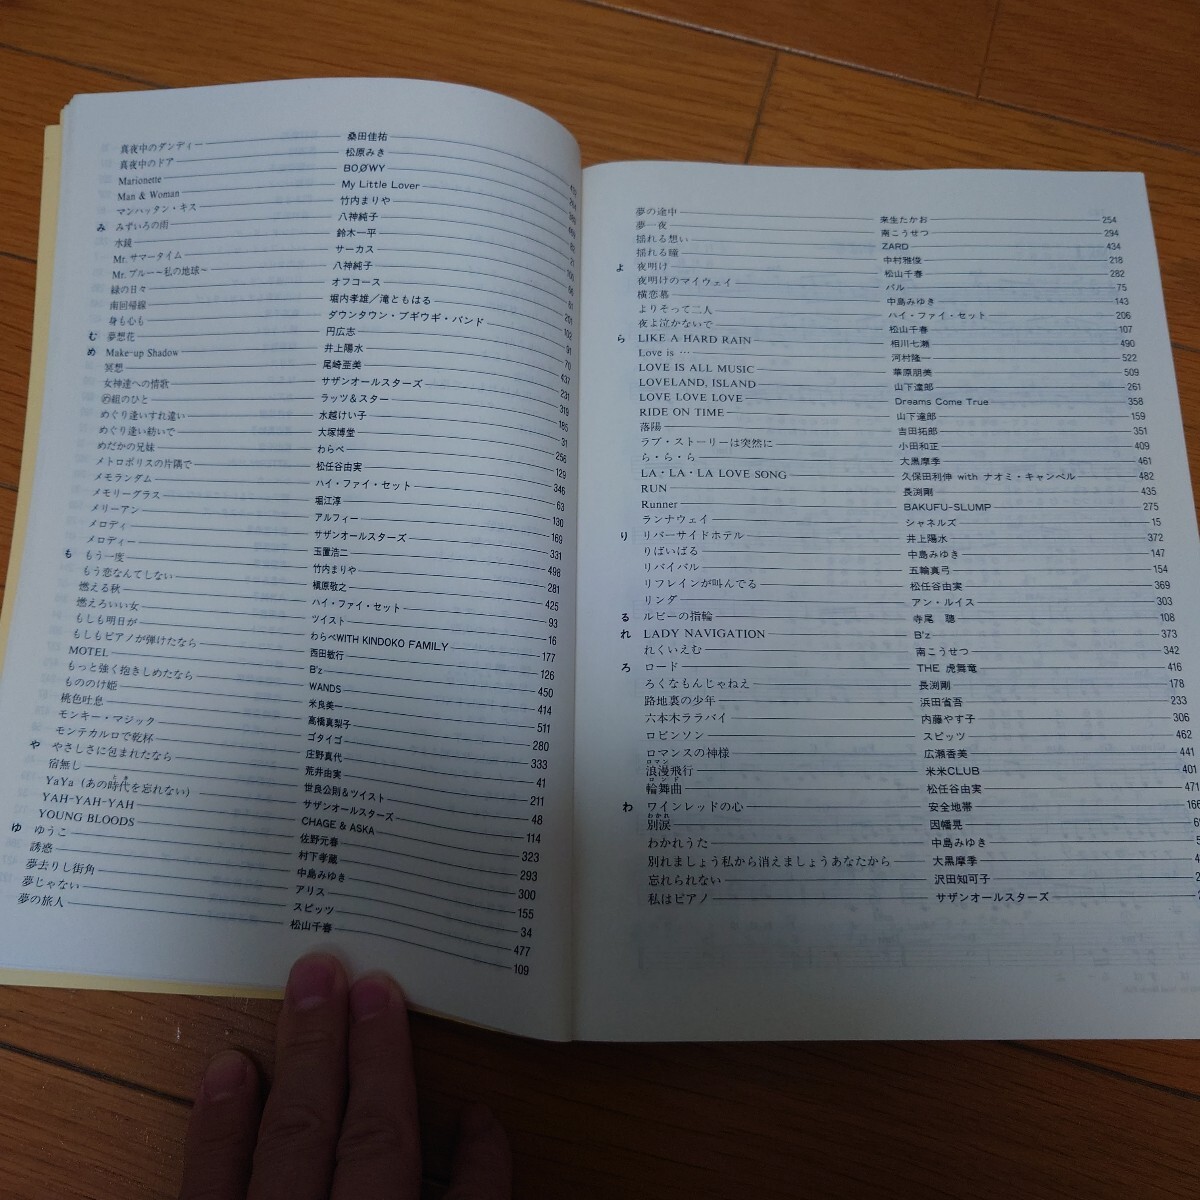 真夜中のダンディー 桑田佳祐
真夜中のドア 松原みき
Marionette BOØWY
Man & Woman My Little Lover
マンハッタン・キス 竹内まりや
み みずいろの雨 八神純子 21
水鏡 鈴木一平 100
Mr.サマータイム サーカス 66
Mr.ブルー〜私の地球〜 八神純子 61
緑の日々 オフコース 201
南回帰線 堀内孝雄／滝ともはる 102
身も心も ダウンタウン・ブギウギ・バンド 91
む 夢想花 円広志 70
め Make-up Shadow 井上陽水 437
冥想 尾崎亜美 231
女神達への情歌 サザンオールスターズ 319
㋱組のひと ラッツ＆スター 185
めぐり逢いすれ違い 水越けい子 31
めぐり逢い紡いで 大塚博堂 256
めだかの兄妹 わらべ 129
メトロポリスの片隅で 松任谷由実 346
メモランダム ハイ・ファイ・セット 63
メモリーグラス 堀江淳 130
メリーアン アルフィー 169
メロディ サザンオールスターズ 331
メロディー 玉置浩二 498
も もう一度 竹内まりや 281
もう恋なんてしない 槇原敬之 425
燃える秋 ハイ・ファイ・セット 93
燃えろいい女 ツイスト 16
もしも明日が わらべWITH KINDOKO FAMILY 177
もしもピアノが弾けたなら 西田敏行 126
MOTEL B'z 450
もっと強く抱きしめたなら WANDS 414
もののけ姫 米良美一 511
桃色吐息 高橋真梨子 280
モンキー・マジック ゴダイゴ 333
モンテカルロで乾杯 庄野真代 41
や やさしさに包まれたなら 荒井由実 211
宿無し 世良公則＆ツイスト 48
YaYa（あの時代を忘れない） サザンオールスターズ 114
YAH-YAH-YAH CHAGE & ASKA 323
YOUNG BLOODS 佐野元春 293
ゆ ゆうこ 村下孝蔵 300
誘惑 中島みゆき 155
夢去りし街角 アリス 34
夢じゃない スピッツ 477
夢の旅人 松山千春 109
夢の途中 来生たかお 254
夢一夜 南こうせつ 294
揺れる想い ZARD 434
揺れる瞳 中村雅俊 218
よ 夜明け 松山千春 282
夜明けのマイウェイ パル 75
横恋慕 中島みゆき 143
よりそって二人 ハイ・ファイ・セット 206
夜よ泣かないで 松山千春 107
ら LIKE A HARD RAIN 相川七瀬 490
Love is … 河村隆一 522
LOVE IS ALL MUSIC 華原朋美 509
LOVELAND, ISLAND 山下達郎 261
LOVE LOVE LOVE Dreams Come True 358
RIDE ON TIME 山下達郎 159
落陽 吉田拓郎 351
ラブ・ストーリーは突然に 小田和正 409
ら・ら・ら 大黒摩季 461
LA・LA・LA LOVE SONG 久保田利伸 with ナオミ・キャンベル 482
RUN 長渕剛 435
Runner BAKUFU-SLUMP 275
ランナウェイ シャネルズ 15
り リバーサイドホテル 井上陽水 372
りばいばる 中島みゆき 147
リバイバル 五輪真弓 154
リフレインが叫んでる 松任谷由実 369
リンダ アン・ルイス 303
る ルビーの指輪 寺尾 聰 108
れ LADY NAVIGATION B'z 373
れくいえむ 南こうせつ 342
ろ ロード THE 虎舞竜 416
ろくなもんじゃねえ 長渕剛 178
路地裏の少年 浜田省吾 233
六本木ララバイ 内藤やす子 306
ロビンソン スピッツ 462
ロマンスの神様 広瀬香美 441
浪漫飛行 米米CLUB 401
輪舞曲 松任谷由実 471
わ ワインレッドの心 安全地帯 166
別涙 因幡晃
わかれうた 中島みゆき
別れましょう私から消えましょうあなたから 大黒摩季
忘れられない 沢田知可子
私はピアノ サザンオールスターズ